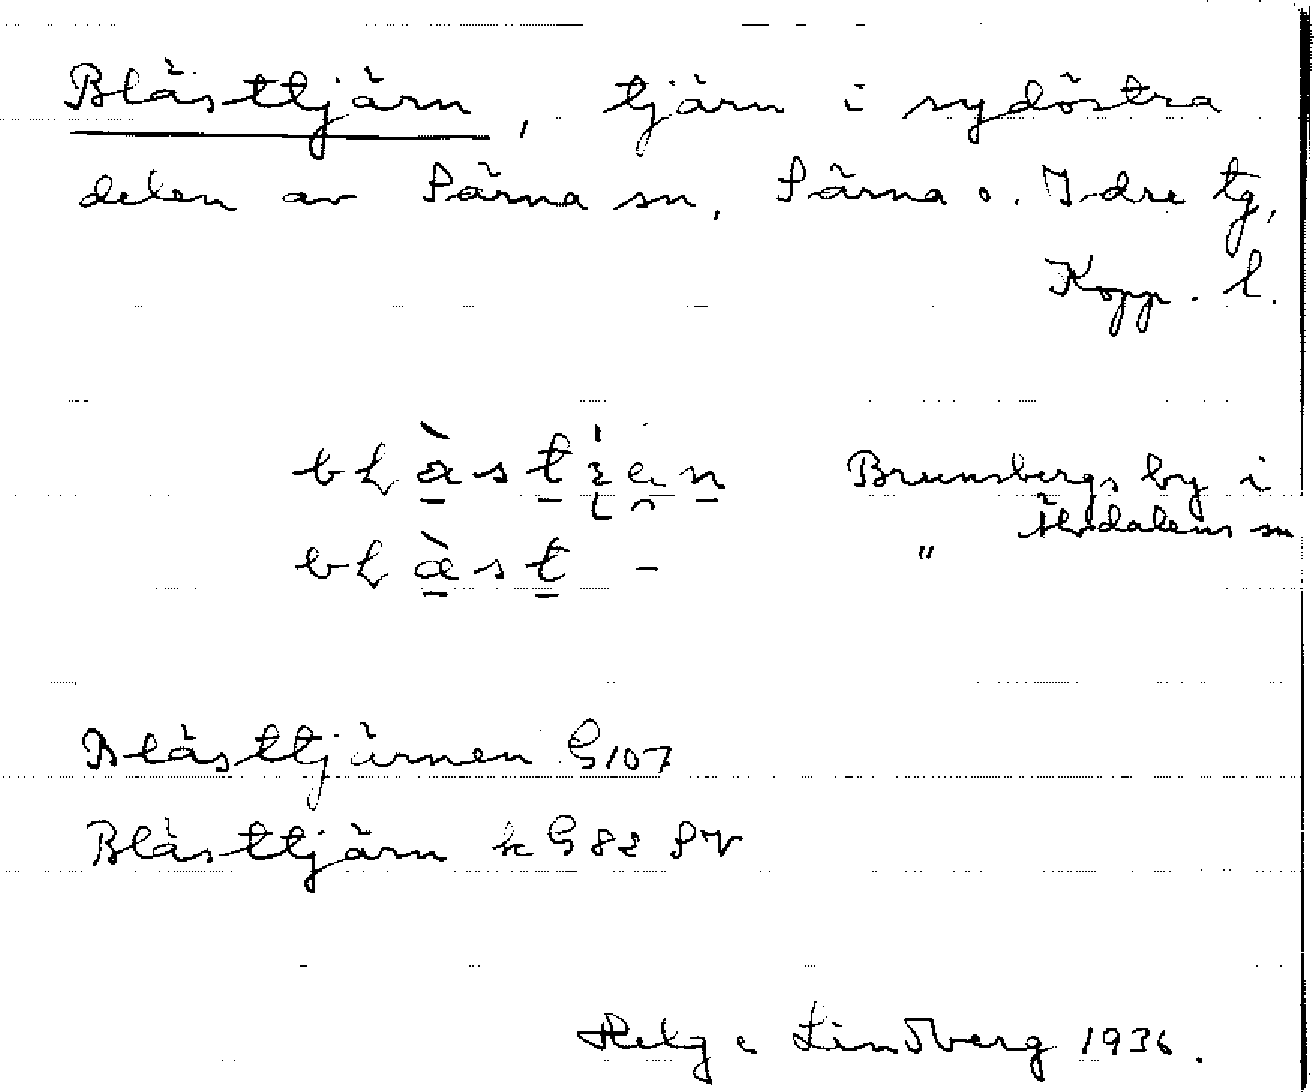 Blästtjärn, tjärn i sydöstra
delen av Särna sn, Särna o. Idre tg,
Kopp. l.
Brunsbergs by i
Älvdalens sn
"
Blästtjärnen G107
Blästtjärn k G82 SV
Helge Lindberg 1936.